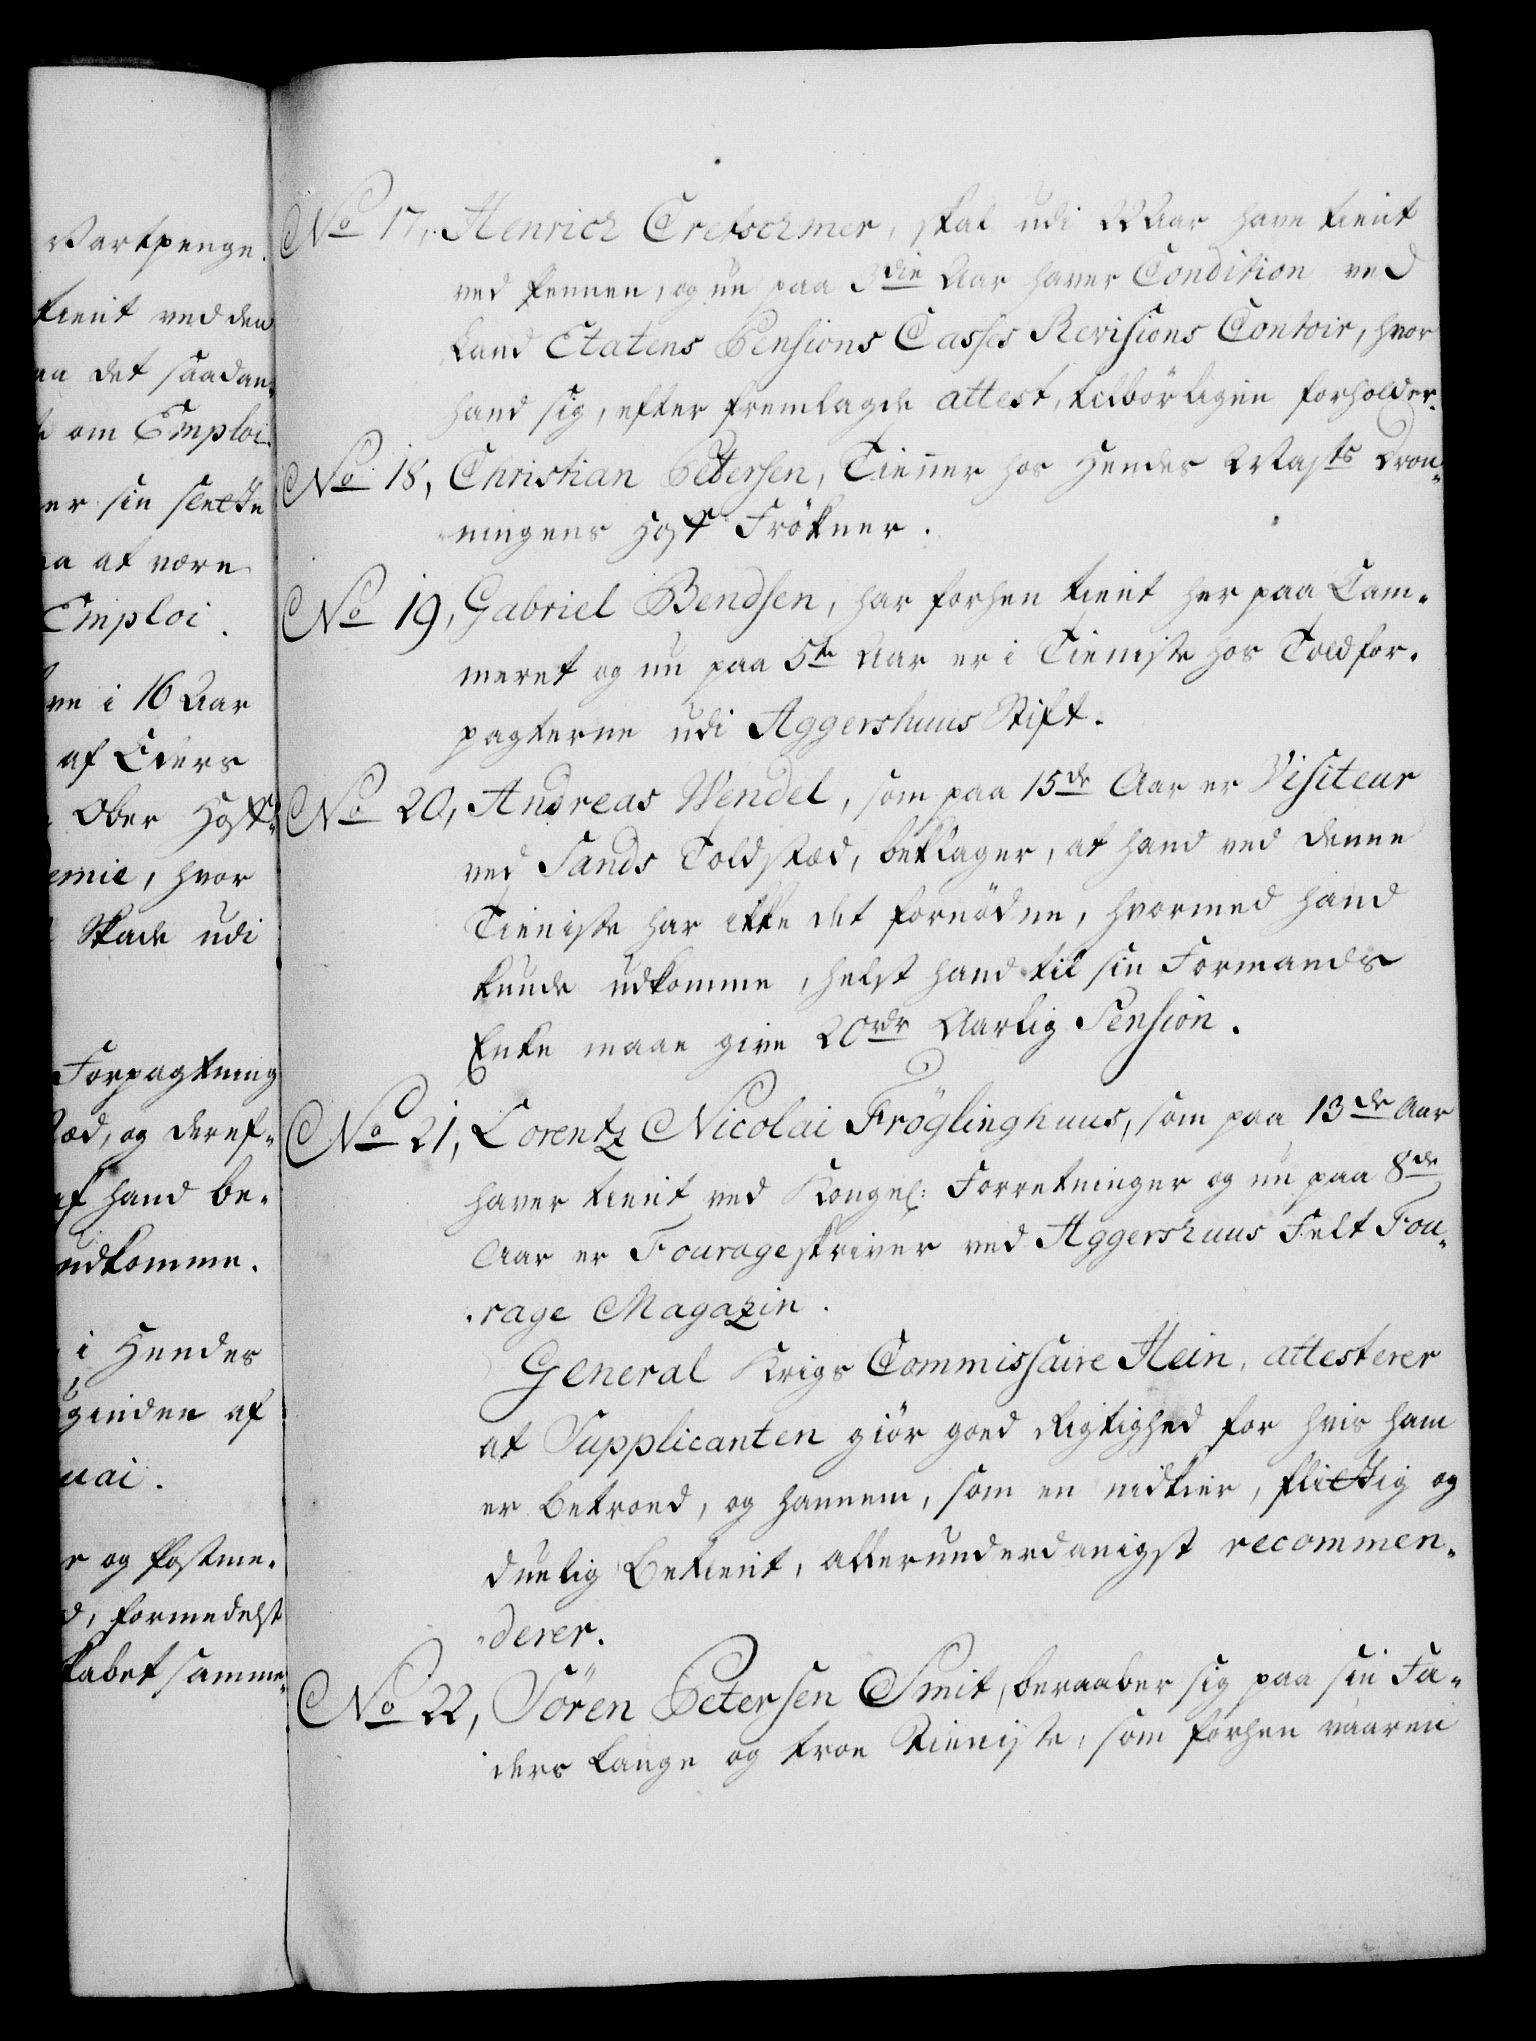 Vartpenge.
tient ved den
aa det saadan-
om Emploi.
er sin slette
aa at være
Emploi.
ve i 16 Aar
af Eders
Ober Hof-
emie, hvor
Skade udi
Forpagtning
æd, og deref-
af hand be-
udkomme.
i Hendes
ginden af
uai.
r og Postme-
d, formedelst
kabet samme-
No 17, Henrich Cretschmer, skal udi 22 Aar have tient
ved Pennen, og nu paa 3die Aar haver Condition ved
Land Etatens Pensions Casses Revisions Contoir, hvor
hand sig, efter fremlagde attest, tilbörligen forholder.
No 18, Christian Petersen, Tienner hos Hendes Mayts Dron-
ningens Hoff Frökner.
No 19, Gabriel Bendsen, har forhen tient her paa Cam-
meret og nu paa 5te Aar er i Tieniste hos Toldfor-
pagterne udi Aggershuus Stift.
No 20, Andreas Wendel, som paa 15de Aar er Visiteur
ved Sands Toldsted, beklager, at hand ved denne
Tieniste har ikke det fornödne, hvormed hand
kunde udkomme, helst hand til sin Formands
Enke maae give 20rdr Aarlig Pension.
No 21, Lorentz Nicolai Fröglinghuus, som paa 13de Aar
haver tient ved Kongel: Forretninger og nu paa 8de
Aar er Fourageskriver ved Aggershuus Felt Fou-
rage Magazin.
General Krigs Commissaire Hein, attesterer
at Supplicanten giör goed Rigtighed for hvis ham
er betroed, og hannem, som en nidkier, flittig og
duelig Betient, allerunderdanigst recommen-
derer.
No 22, Sören Petersen Smit, beraaber sig paa sin Fa-
ders lange og troe Tieniste, som forhen vaaren